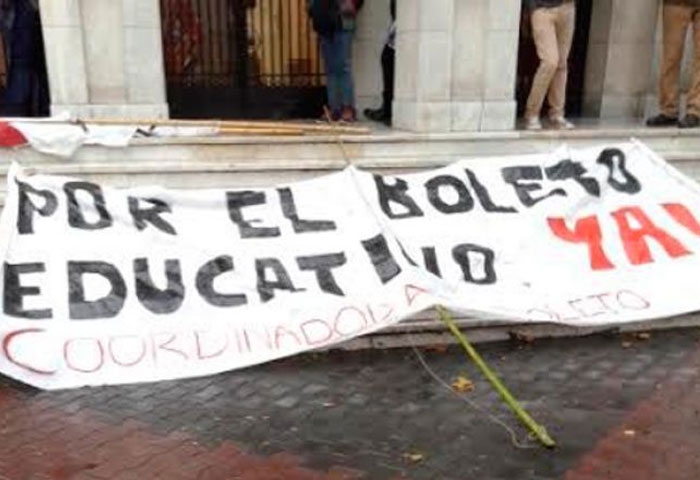 POR EL BOLETO
EDUCATIVO YA!
COORDINADORA BOLETO